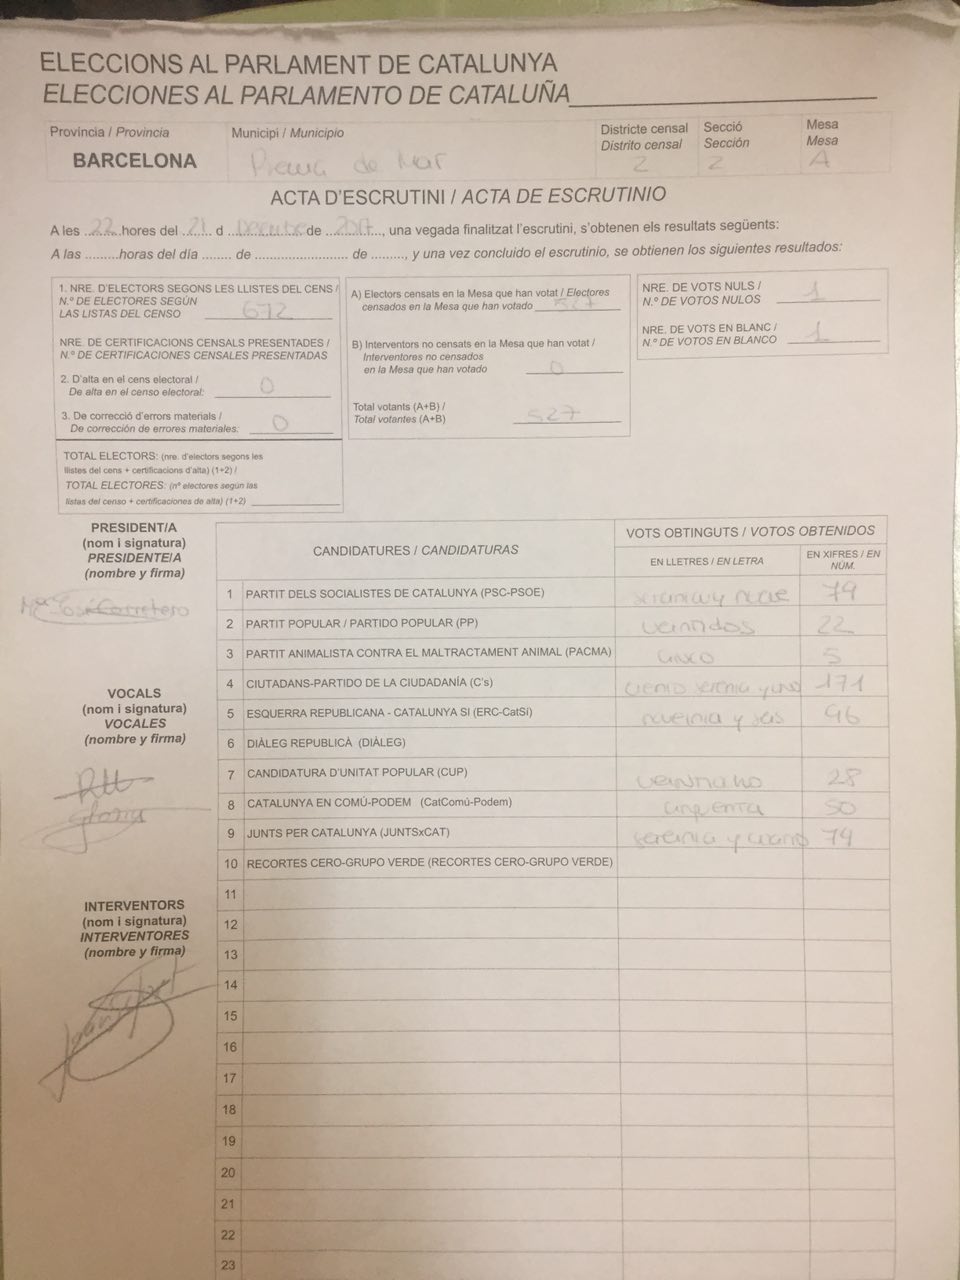 ELECCIONS AL PARLAMENT DE CATALUNYA
ELECCIONES AL PARLAMENTO DE CATALUÑA
Província / Provincia
Municipi / Municipio
Districte censal
Distrito censal
Secció
Sección
Mesa
Mesa
BARCELONA
de Mar
2
2
A
ACTA D'ESCRUTINI / ACTA DE ESCRUTINIO
A les ..22..hores del ..21.. d ........ de ..2017.., una vegada finalitzat l'escrutini, s'obtenen els resultats següents:
A las .........horas del día ....... de ............................ de .........., y una vez concluido el escrutinio, se obtienen los siguientes resultados:
1. NRE. D'ELECTORS SEGONS LES LLISTES DEL CENS /
N.º DE ELECTORES SEGÚN
LAS LISTAS DEL CENSO 672
NRE. DE CERTIFICACIONS CENSALS PRESENTADES /
N.º DE CERTIFICACIONES CENSALES PRESENTADAS
2. D'alta en el cens electoral /
De alta en el censo electoral: 0
3. De correcció d'errors materials /
De corrección de errores materiales: 0
TOTAL ELECTORS: (nre. d'electors segons les
llistes del cens + certificacions d'alta) (1+2) /
TOTAL ELECTORES: (nº electores según las
listas del censo + certificaciones de alta) (1+2)
A) Electors censats en la Mesa que han votat / Electores
censados en la Mesa que han votado 527
B) Interventors no censats en la Mesa que han votat /
Interventores no censados
en la Mesa que han votado 0
Total votants (A+B) /
Total votantes (A+B) 527
NRE. DE VOTS NULS /
N.º DE VOTOS NULOS 1
NRE. DE VOTS EN BLANC /
N.º DE VOTOS EN BLANCO 1
PRESIDENT/A
(nom i signatura)
PRESIDENTE/A
(nombre y firma)
Mª José Carretero
VOCALS
(nom i signatura)
VOCALES
(nombre y firma)
Gloria
INTERVENTORS
(nom i signatura)
INTERVENTORES
(nombre y firma)
CANDIDATURES / CANDIDATURAS
VOTS OBTINGUTS / VOTOS OBTENIDOS
EN LLETRES / EN LETRA
EN XIFRES / EN
NÚM.
1 PARTIT DELS SOCIALISTES DE CATALUNYA (PSC-PSOE) setenta y nueve 79
2 PARTIT POPULAR / PARTIDO POPULAR (PP) veintidos 22
3 PARTIT ANIMALISTA CONTRA EL MALTRACTAMENT ANIMAL (PACMA) cinco 5
4 CIUTADANS-PARTIDO DE LA CIUDADANÍA (C's) ciento setenta y uno 171
5 ESQUERRA REPUBLICANA - CATALUNYA SI (ERC-CatSí) noventa y seis 96
6 DIÀLEG REPUBLICÀ (DIÀLEG)
7 CANDIDATURA D'UNITAT POPULAR (CUP) 28
8 CATALUNYA EN COMÚ-PODEM (CatComú-Podem) 50
9 JUNTS PER CATALUNYA (JUNTSxCAT) setenta y cuatro 74
10 RECORTES CERO-GRUPO VERDE (RECORTES CERO-GRUPO VERDE)
11
12
13
14
15
16
17
18
19
20
21
22
23